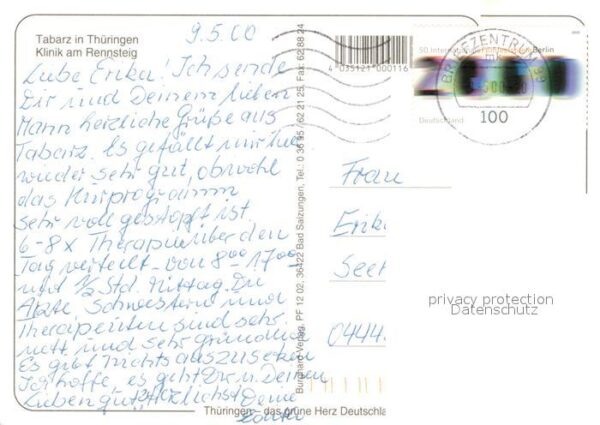 Tabarz in Thüringen
Klinik am Rennsteig
9.5.00
Liebe Erika! Ich sende
Dir und Deinem lieben
Mann herzliche Grüße aus
Tabarz. Es gefällt mir hier
wieder sehr gut, obwohl
das Kurprogramm
sehr voll gestopft ist.
6-8x Therapie über den
Tag verteilt von 8⁰⁰-17⁰⁰
und ½ Std. Mittag. Die
Ärzte Schwestern und
Therapeuten sind sehr
nett und sehr gründlich
Es gibt nichts auszusetzen
Ich hoffe, es geht Dir u. Deinem
Lieben gut. Herzlichst Deine
Burghard-Verlag, PF 12 02, 36422 Bad Salzungen, Tel.: 0 36 95 / 62 21 25, Fax: 62 88 24
4 035121 000116
50 Internationale Berlin
BRIEFZENTRUM 99
mk
100
Deutschland
Frau
Erik
See
0444
privacy protection
Datenschutz
Thüringen - das grüne Herz Deutschla